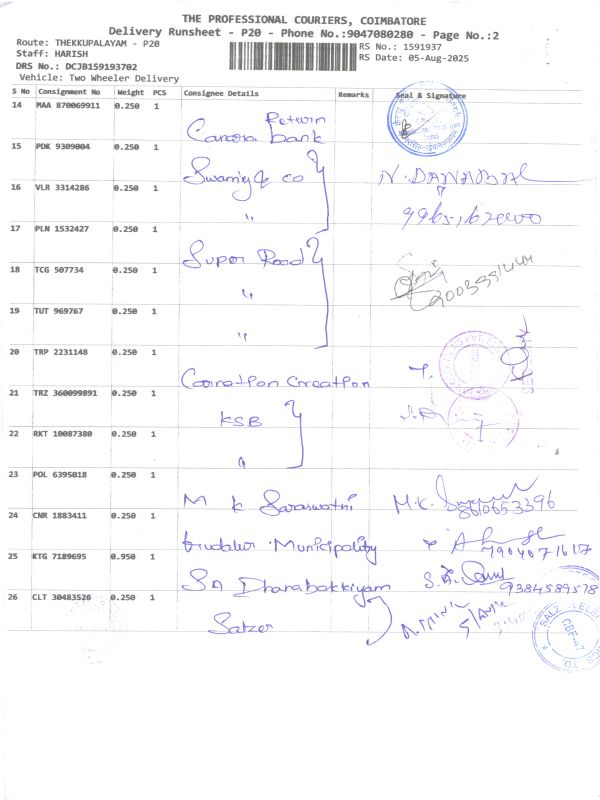 THE PROFESSIONAL COURIERS, COIMBATORE
Delivery Runsheet - P20 - Phone No.:9047080280 - Page No.:2
Route: THEKKUPALAYAM - P20
RS No.: 1591937
Staff: HARISH
RS Date: 05-Aug-2025
DRS No.: DCJB159193702
Vehicle: Two Wheeler Delivery
S No Consignment No Weight PCS Consignee Details Remarks Seal & Signature
14 MAA 870069911 0.250 1
Return
Canara bank
15 PDK 9309004 0.250 1
Swamy & co
16 VLR 3314286 0.250 1
"
17 PLN 1532427 0.250 1
Super Road
18 TCG 507734 0.250 1
"
19 TUT 969767 0.250 1
"
20 TRP 2231148 0.250 1
21 TRZ 360099891 0.250 1
KSB
22 RKT 10087380 0.250 1
"
23 POL 6395018 0.250 1
M K Saraswathi M.K.
8610653396
24 CNR 1883411 0.250 1
Gudalur Municipality
7904071617
25 KTG 7189695 0.950 1
SA Dhanabakkiyam S.A.
9384589578
26 CLT 30483526 0.250 1
Salzer
CBE-47